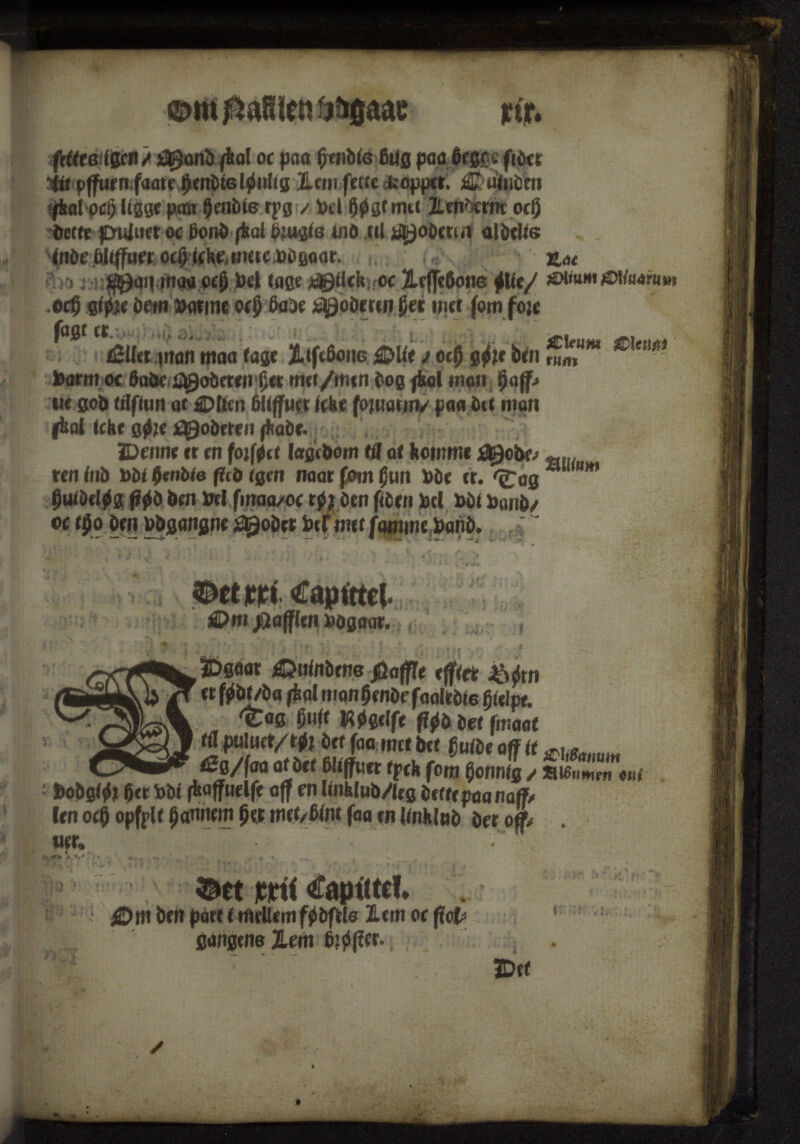 Om Nafflen vdgaar xix.
settes igen / Mand skal oc paa hendis Bug paa begge sider
it pffuen faare hendis lønlig Lem sette kopper. Quinden
skal och ligge paa hendis ryg / vel høgt met Lenderne och
dette Puluer oc Bond skal brugis ind til Moderen aldelis
inde bliffuer och icke mere vdgaar.
Man maa och vel tage Mælck oc Lessebons Olie /
och giøre dem varme och bade Moderen her met som føre
sagt er.
Lac
Olium Oliuarum
Eller man maa tage Lissebons Olie / och gøre den
varm oc bade Moderen her met / men dog skal man haff-
ue god tilsiun at Olien bliffuer icke for varm / paa det man
skal icke gøre Moderen skade.
Oleum Oleum
rum
Denne er en forsøct lægedom til at komme Mode-
ren ind vdi hendis sted igen naar som hun vde er. Tag
Huideløg stød den vel smaa / oc rør den siden vel vdi vand /
oc tho den vdgangne Moder vel met samme vand.
Allium
Det xxi. Capittel.
Om Nafflen vdgaar.
VDgaar Quindens Naffle effter Børn
er født / da skal man hende saaledis hielpe.
Tag huit Røgelse stød det smaat
til puluer / rør det saa met det huide aff it
Eg / saa at det bliffuer tyck som honnig /
vodgiør her vdi skaffuelse aff en linklud / leg dette paa naff-
len och opfylt hannem her met / bint saa en linklud der off-
uer.
Olibanum
Albumen oui
Det xxii Capittel.
Om den part i mellem fødsels Lem oc stol-
gangens Lem brøster.
Det